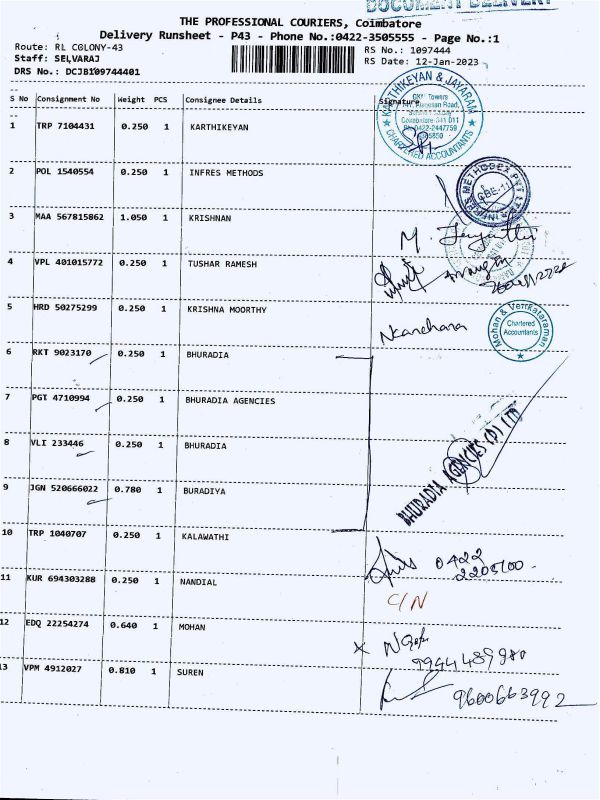 DOCUMENT DELIVERY
THE PROFESSIONAL COURIERS, Coimbatore
Delivery Runsheet - P43 - Phone No.:0422-3505555 - Page No.:1
Route: RL COLONY-43
RS No.: 1097444
Staff: SELVARAJ
RS Date: 12-Jan-2023
DRS No.: DCJB109744401
S No Consignment No Weight PCS Consignee Details Signature
KARTHIKEYAN & JAYARAM
CHARTERED ACCOUNTANTS
1 TRP 7104431 0.250 1 KARTHIKEYAN
2 POL 1540554 0.250 1 INFRES METHODS
3 MAA 567815862 1.050 1 KRISHNAN
M.
4 VPL 401015772 0.250 1 TUSHAR RAMESH
5 HRD 50275299 0.250 1 KRISHNA MOORTHY
Mohan & Venkataraman
Chartered
Accountants
6 RKT 9023170 0.250 1 BHURADIA
7 PGT 4710994 0.250 1 BHURADIA AGENCIES
8 VLI 233446 0.250 1 BHURADIA
BHURADIA AGENCIES (P) LTD
9 JGN 520666022 0.780 1 BURADIYA
10 TRP 1040707 0.250 1 KALAWATHI
0422
11 KUR 694303288 0.250 1 NANDIAL
C/N
12 EDQ 22254274 0.640 1 MOHAN
13 VPM 4912027 0.810 1 SUREN
9600663992